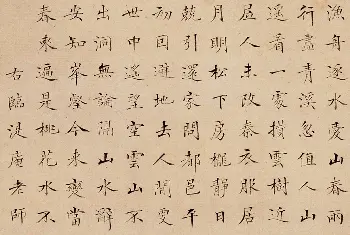 漁舟逐水愛山春兩
行盡青溪忽值人山
遙看一處攢雲樹近
居人未改秦衣服居
月明松下房櫳靜日
競引還家問都邑平
初因避地去人間更
世中遙望空雲山不
出洞無論隔山水辭
安知峯壑今來變當
春來遍是桃花水不
右臨湜廣老師